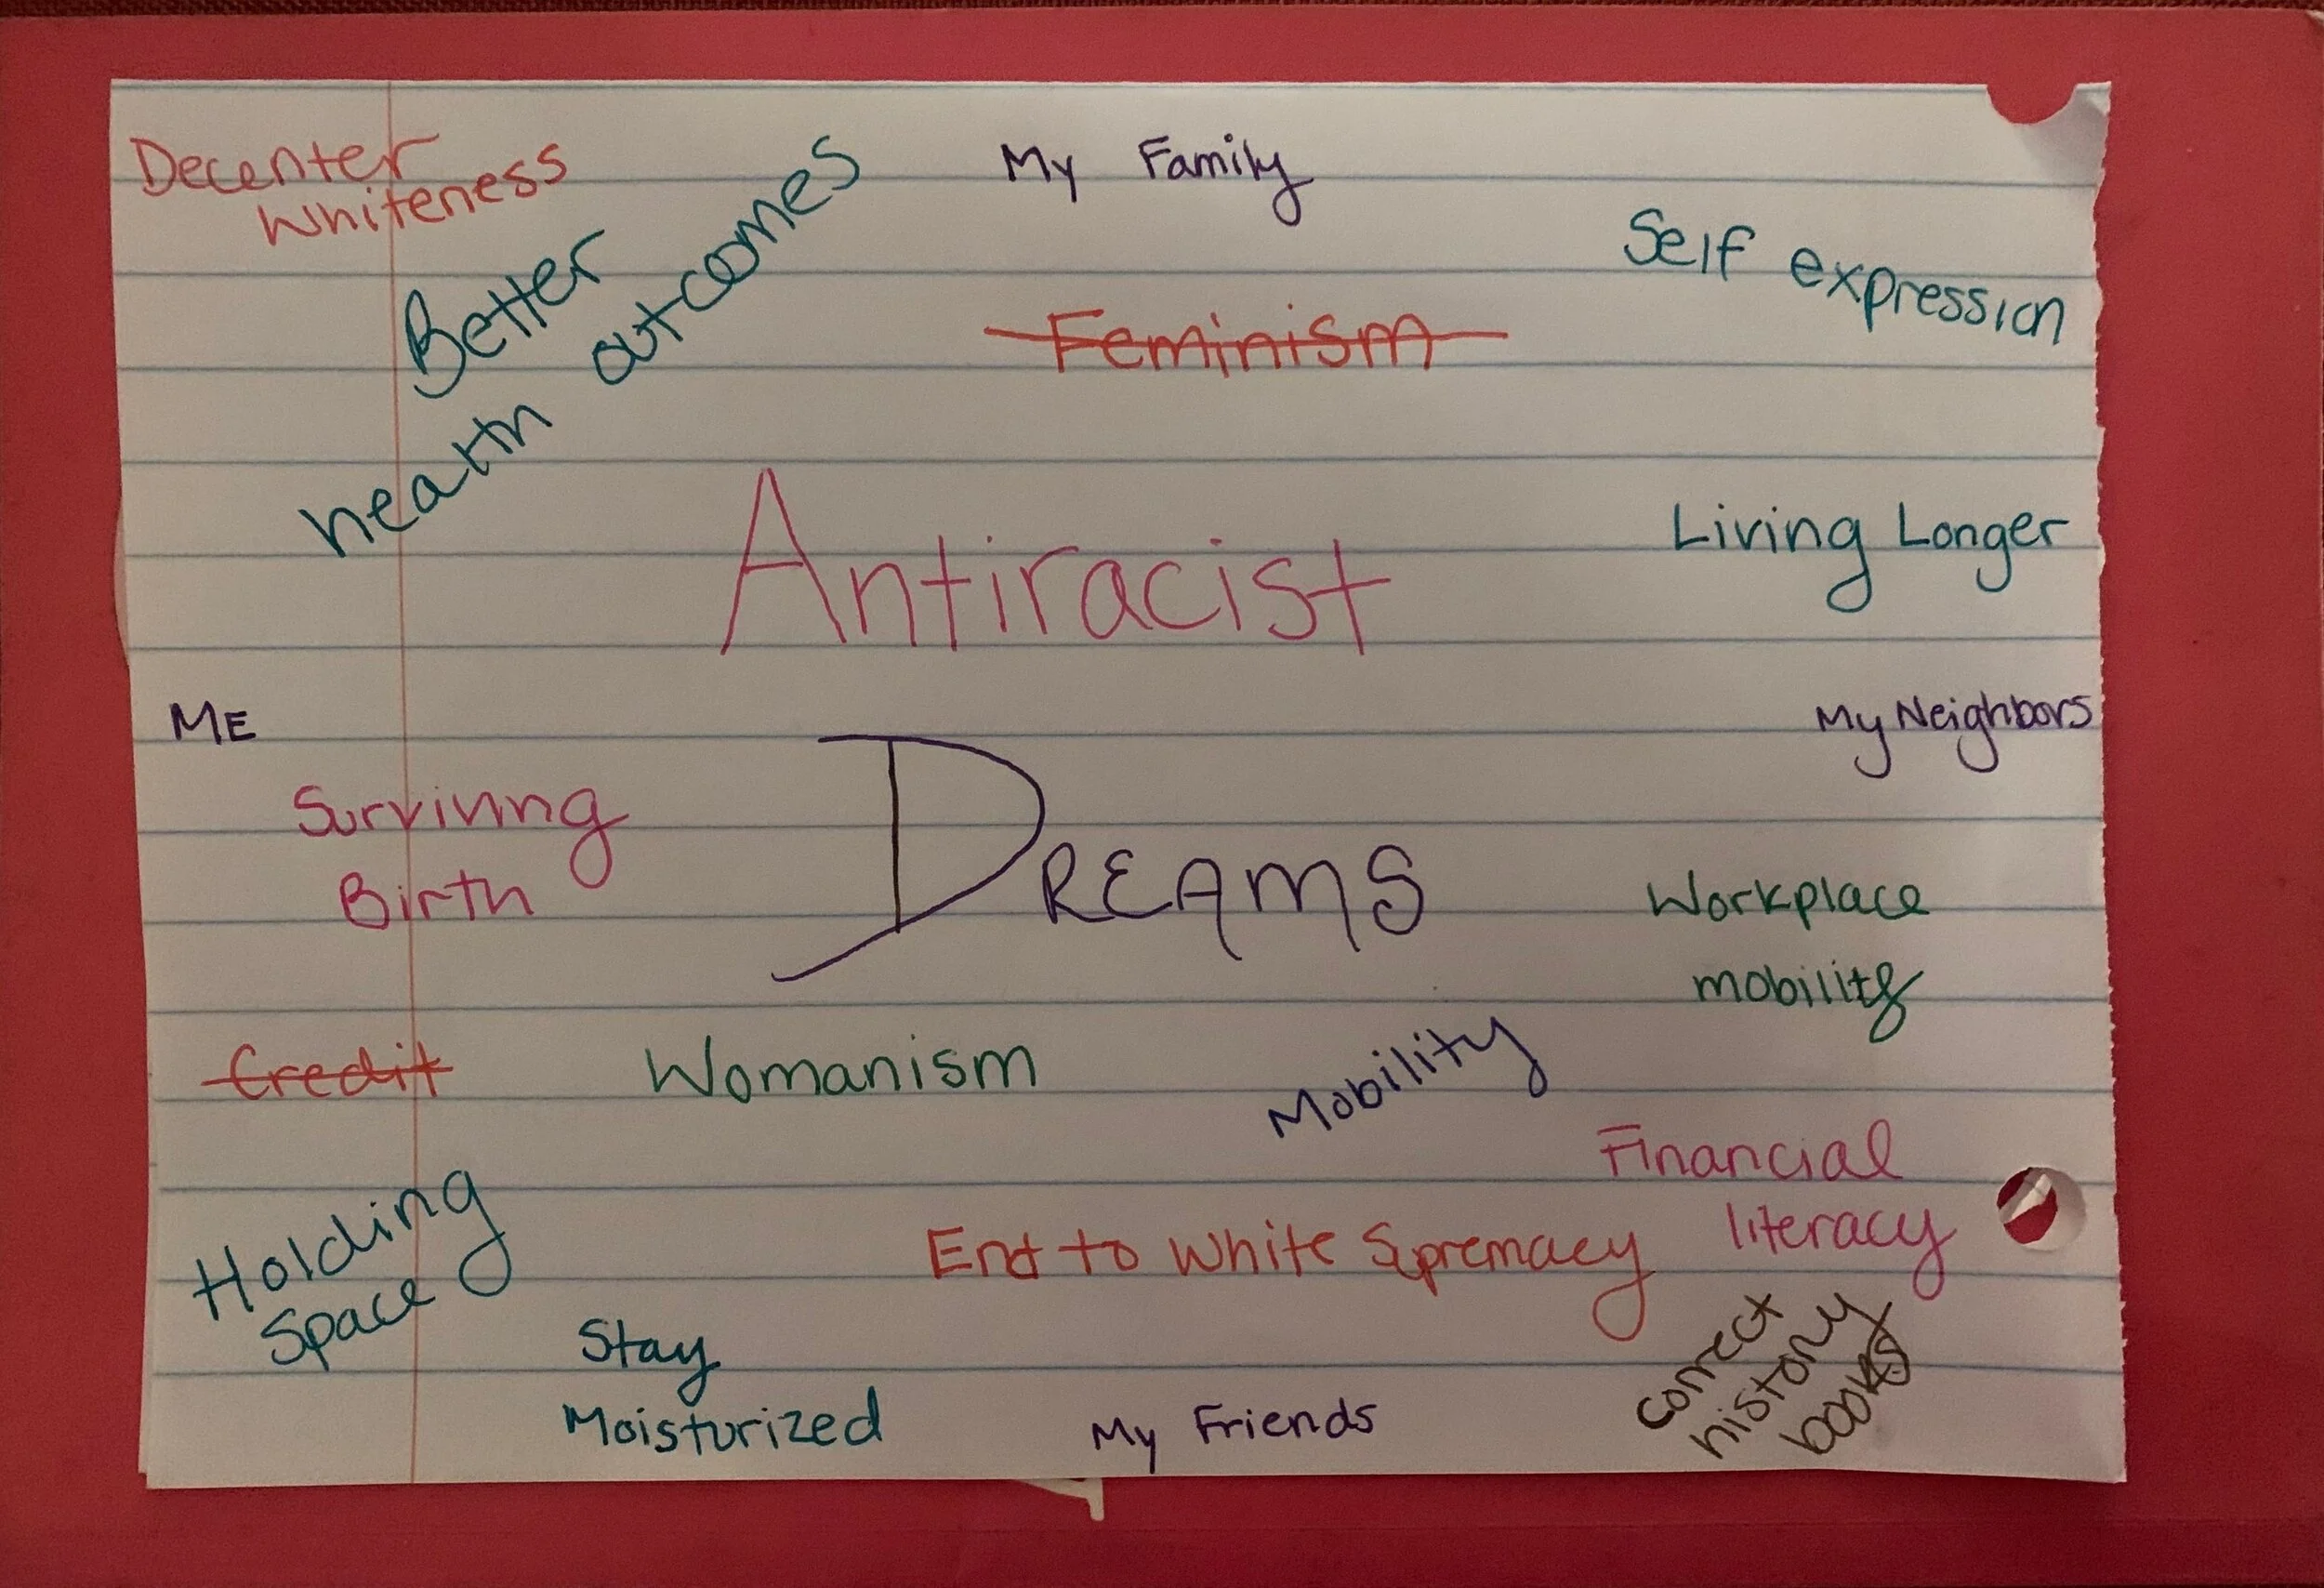 Decenter
Whiteness
Better
health outcomes
My Family
Self expression
Feminism
Antiracist
Living Longer
ME
My Neighbors
Surviving
Birth
DREAMS
Workplace
mobility
Credit
Womanism
Mobility
Financial
literacy
Holding
Space
End to White Supremacy
Stay
Moisturized
My Friends
correct
history
books